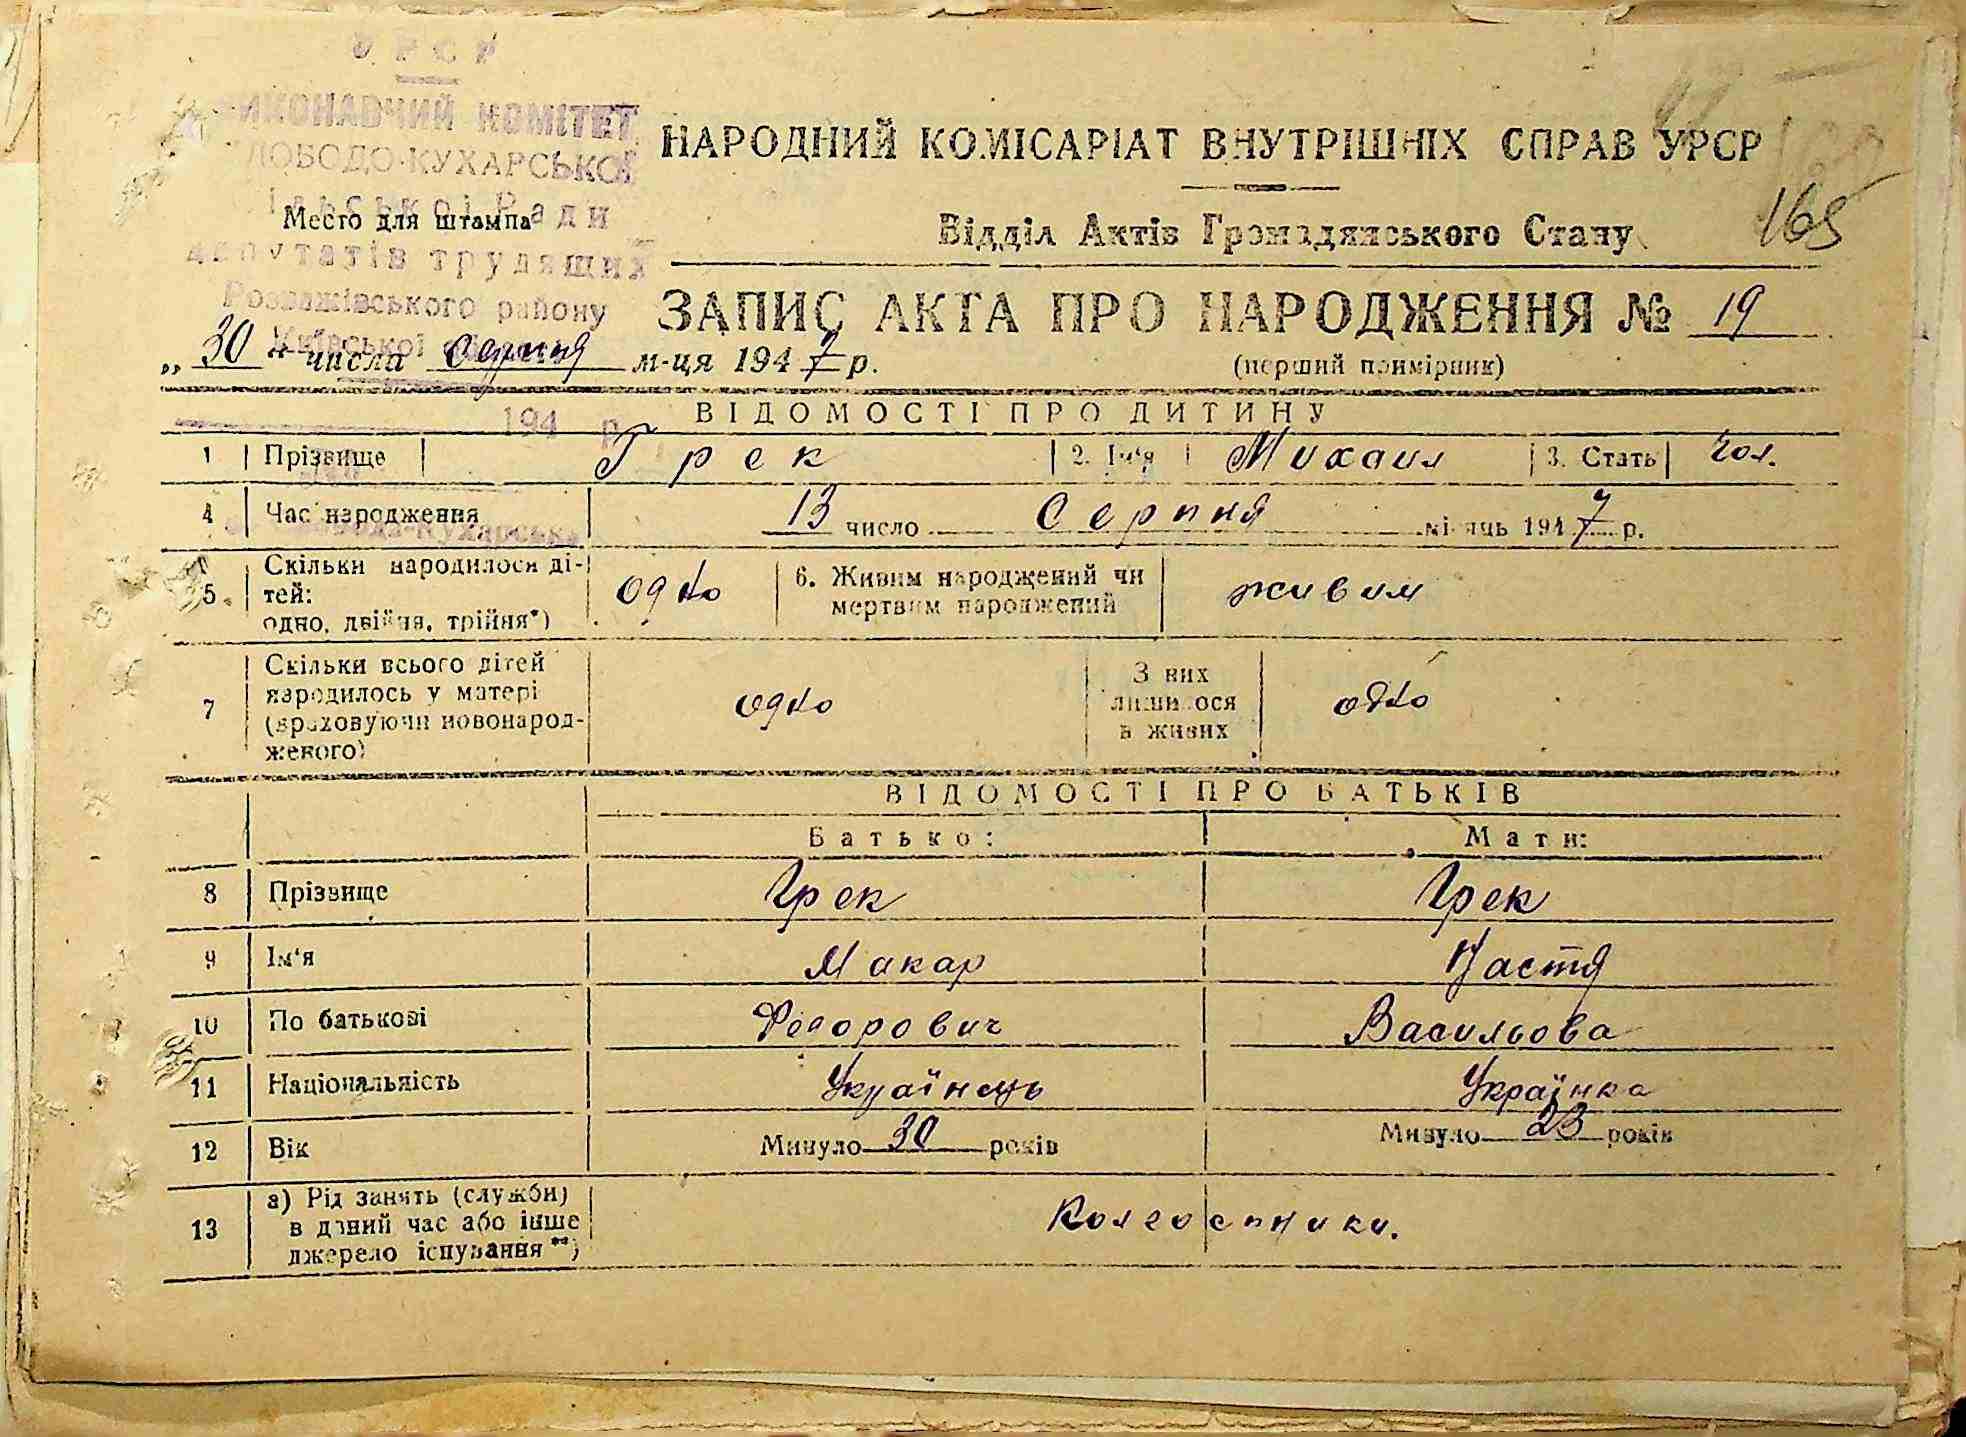 УРСР
ВИКОНАВЧИЙ КОМІТЕТ
СЛОБОДО-КУХАРСЬКОЇ
Сільської Ради
депутатів трудящих
Розважівського району
Київської
194 р.
НАРОДНИЙ КОМІСАРІАТ ВНУТРІШНІХ СПРАВ УРСР
Место для штампа
Відділ Актів Громадянського Стану
165
ЗАПИС АКТА ПРО НАРОДЖЕННЯ № 19
„30“ числа Серпня м-ця 1947 р.
(перший примірник)
ВІДОМОСТІ ПРО ДИТИНУ
1 Прізвище Грек 2. Ім'я Михаил 3. Стать Чол.
4 Час народження 13 число Серпня місяць 1947 р.
Слобода-Кухарська
5. Скільки народилося ді-
тей:
одно, двійня, трійня*)
одно
6. Живим народжений чи
мертвим народжений
живим
7 Скільки всього дітей
народилось у матері
(враховуючи новонарод-
женого)
одно
З них
лишилося
в живих
одно
ВІДОМОСТІ ПРО БАТЬКІВ
Батько: Мати:
8 Прізвище Грек Грек
9 Ім'я Макар Настя
10 По батькові Федорович Васильова
11 Національність Українець Українка
12 Вік Минуло 30 років Минуло 23 років
13 а) Рід занять (служби)
в даний час або інше
джерело існування**)
Колгоспники.